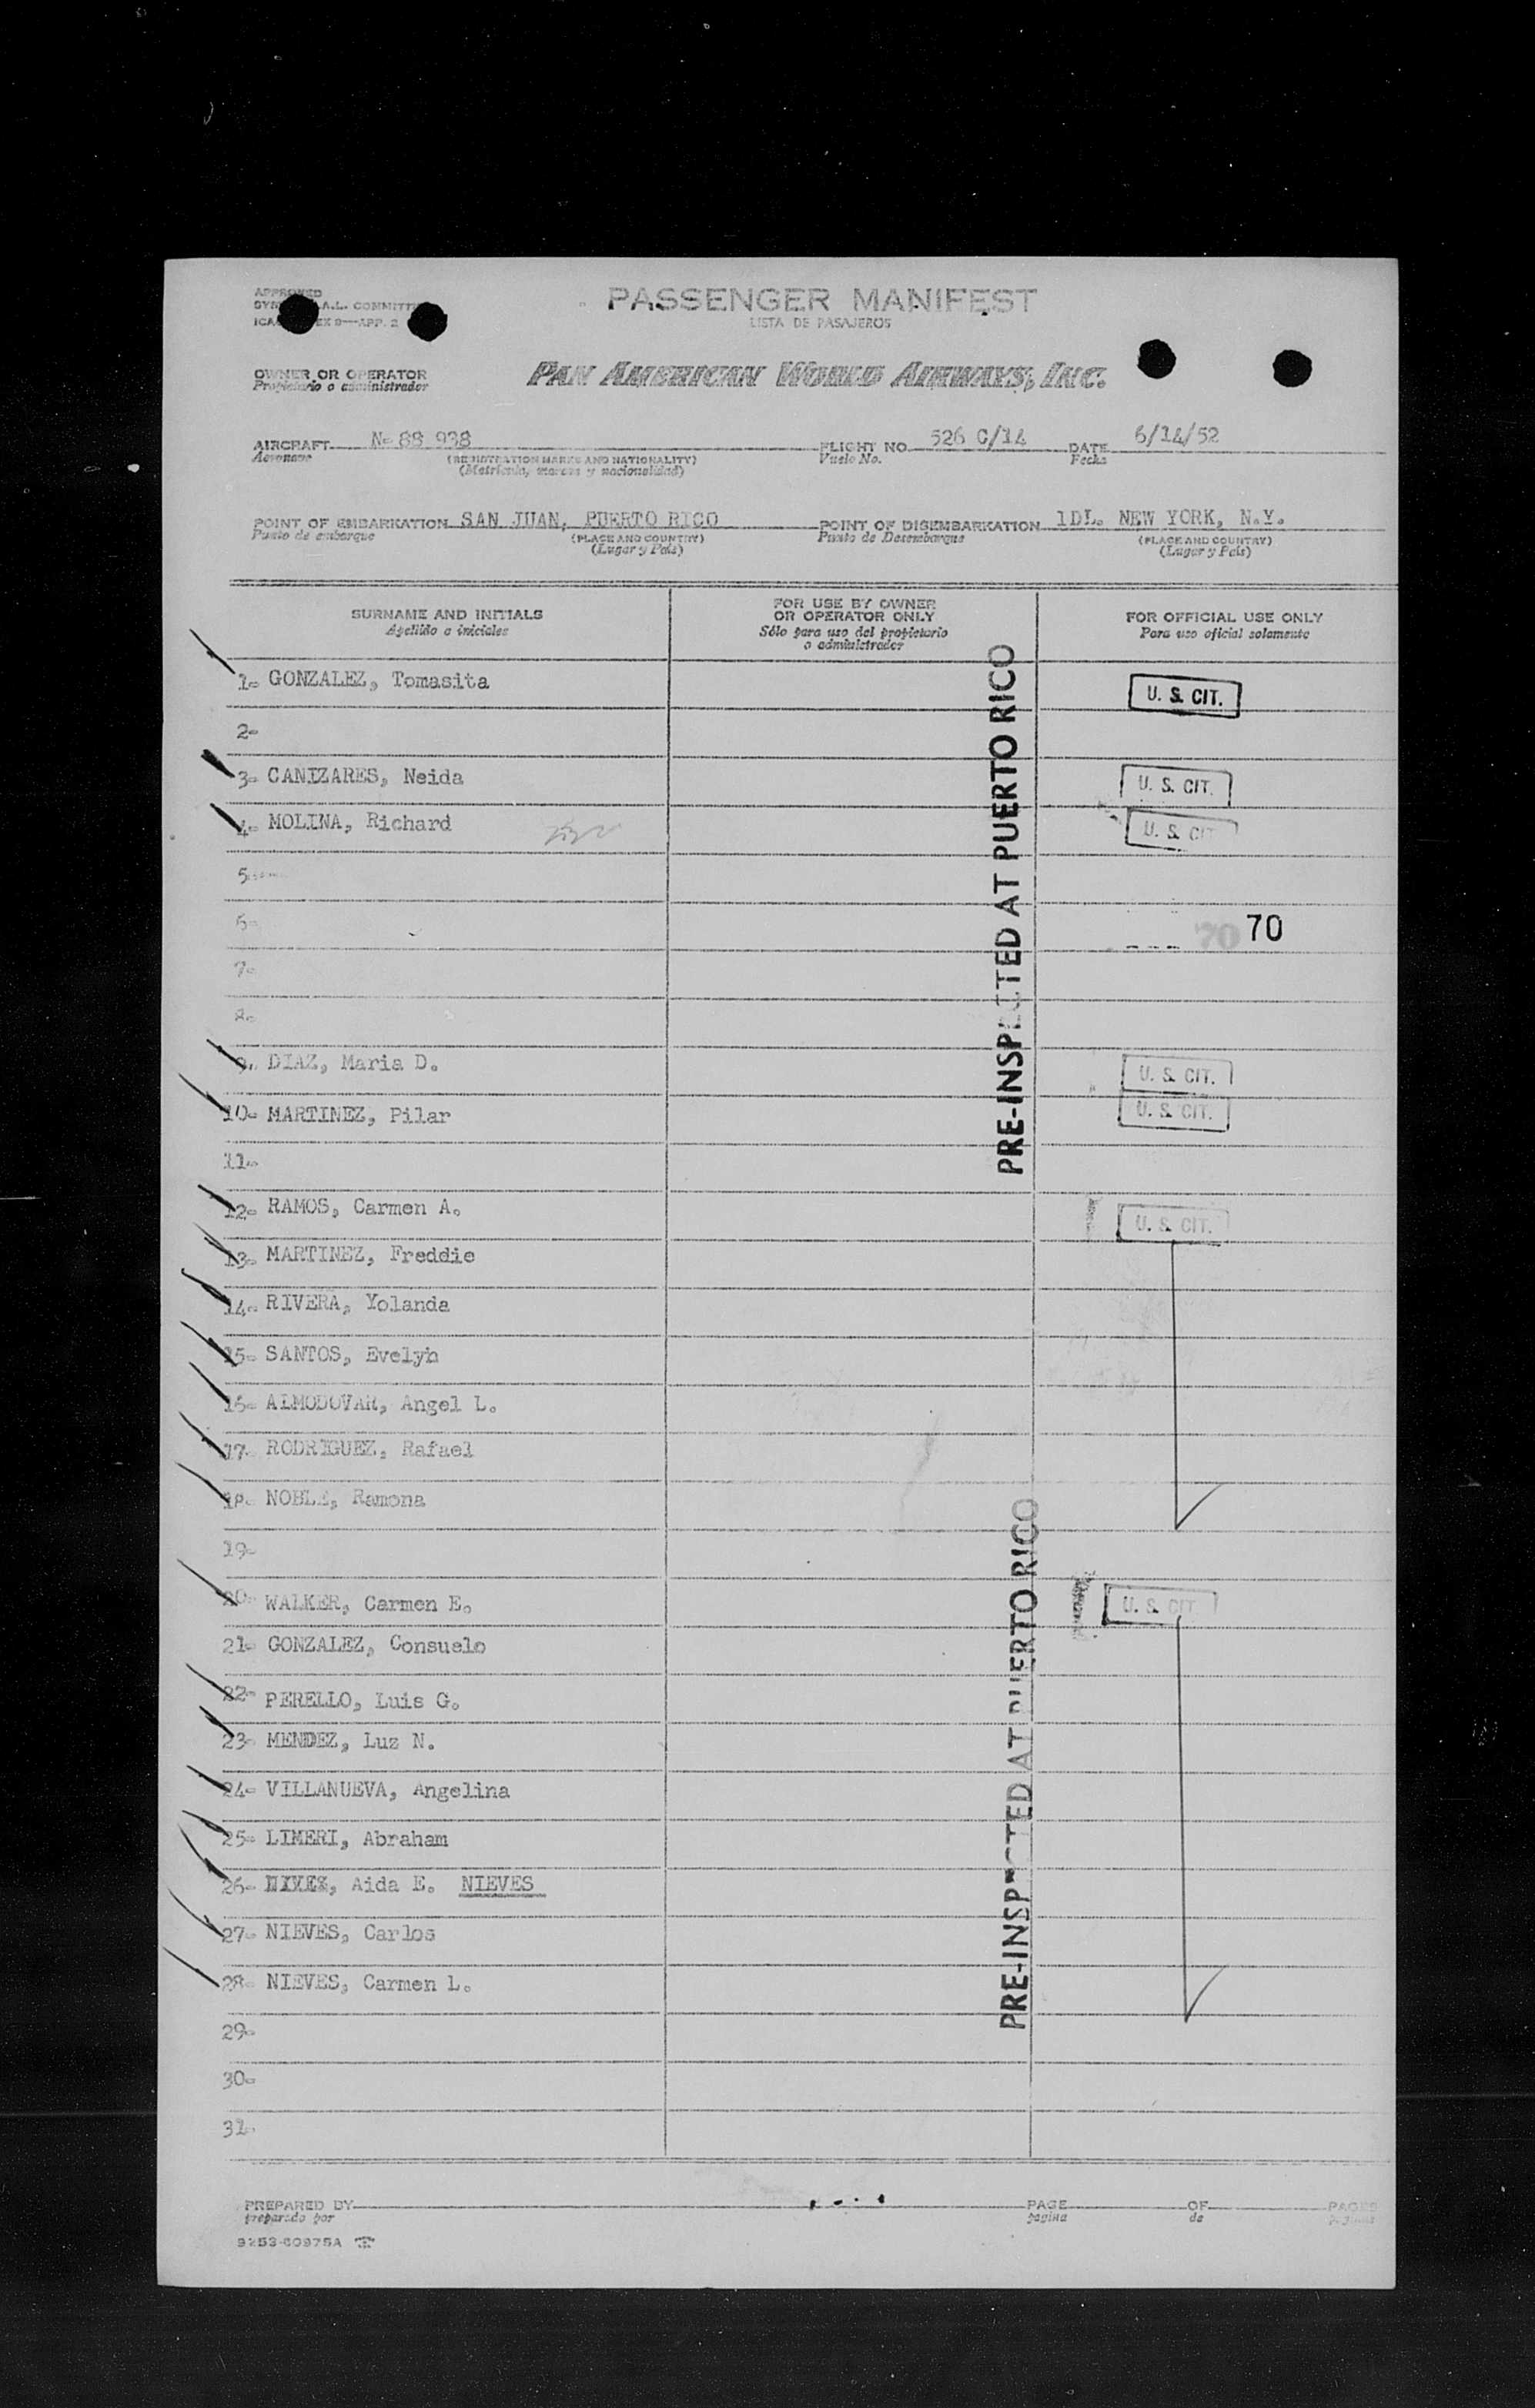 APPROVED PASSENGER MANIFEST
A.L. COMMITTEE LISTA DE PASAJEROS
EX 9—APP. 2
OWNER OR OPERATOR PAN AMERICAN WORLD AIRWAYS, INC.
Propietario o administrador
AIRCRAFT N-88 938 FLIGHT NO. 526 C/14 DATE 6/14/52
Aeronave (REGISTRATION MARKS AND NATIONALITY) Vuelo No. Fecha
(Matrícula, marcas y nacionalidad)
POINT OF EMBARKATION SAN JUAN, PUERTO RICO POINT OF DISEMBARKATION IDL. NEW YORK, N.Y.
Punto de embarque (PLACE AND COUNTRY) Punto de Desembarque (PLACE AND COUNTRY)
(Lugar y País) (Lugar y País)
SURNAME AND INITIALS FOR USE BY OWNER OR OPERATOR ONLY FOR OFFICIAL USE ONLY
Apellido o iniciales Sólo para uso del propietario o administrador Para uso oficial solamente
1- GONZALEZ, Tomasita U. S. CIT.
2-
3- CANIZARES, Neida U. S. CIT.
4- MOLINA, Richard U. S. CIT
5-
6- 70 70
7-
8-
9- DIAZ, Maria D. U. S. CIT.
10- MARTINEZ, Pilar U. S. CIT.
11-
PRE-INSPECTED AT PUERTO RICO
12- RAMOS, Carmen A. U. S. CIT.
13- MARTINEZ, Freddie
14- RIVERA, Yolanda
15- SANTOS, Evelyn
16- ALMODOVAR, Angel L.
17- RODRIGUEZ, Rafael
18- NOBLE, Ramona
19-
20- WALKER, Carmen E. U. S. CIT
21- GONZALEZ, Consuelo
22- PERELLO, Luis G.
23- MENDEZ, Luz N.
24- VILLANUEVA, Angelina
25- LIMERI, Abraham
26- Aida E. NIEVES
27- NIEVES, Carlos
28- NIEVES, Carmen L.
PRE-INSPECTED AT PUERTO RICO
29-
30-
31-
PREPARED BY PAGE OF PAGES
preparado por página de páginas
9253-60975A